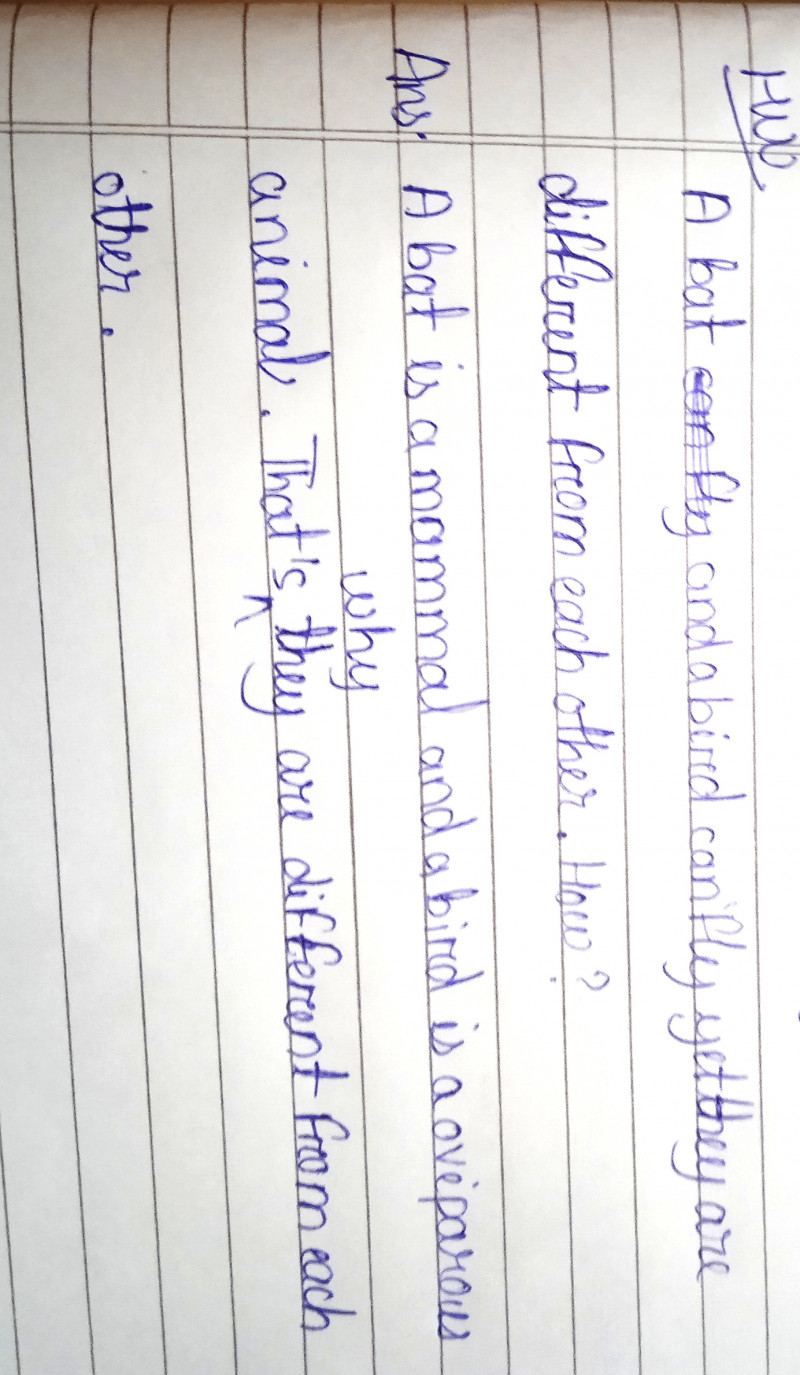 H.W
A bat and a bird can fly yet they are
different from each other. How?
Ans. A bat is a mammal and a bird is a oveparous
animal. That's why they are different from each
other.